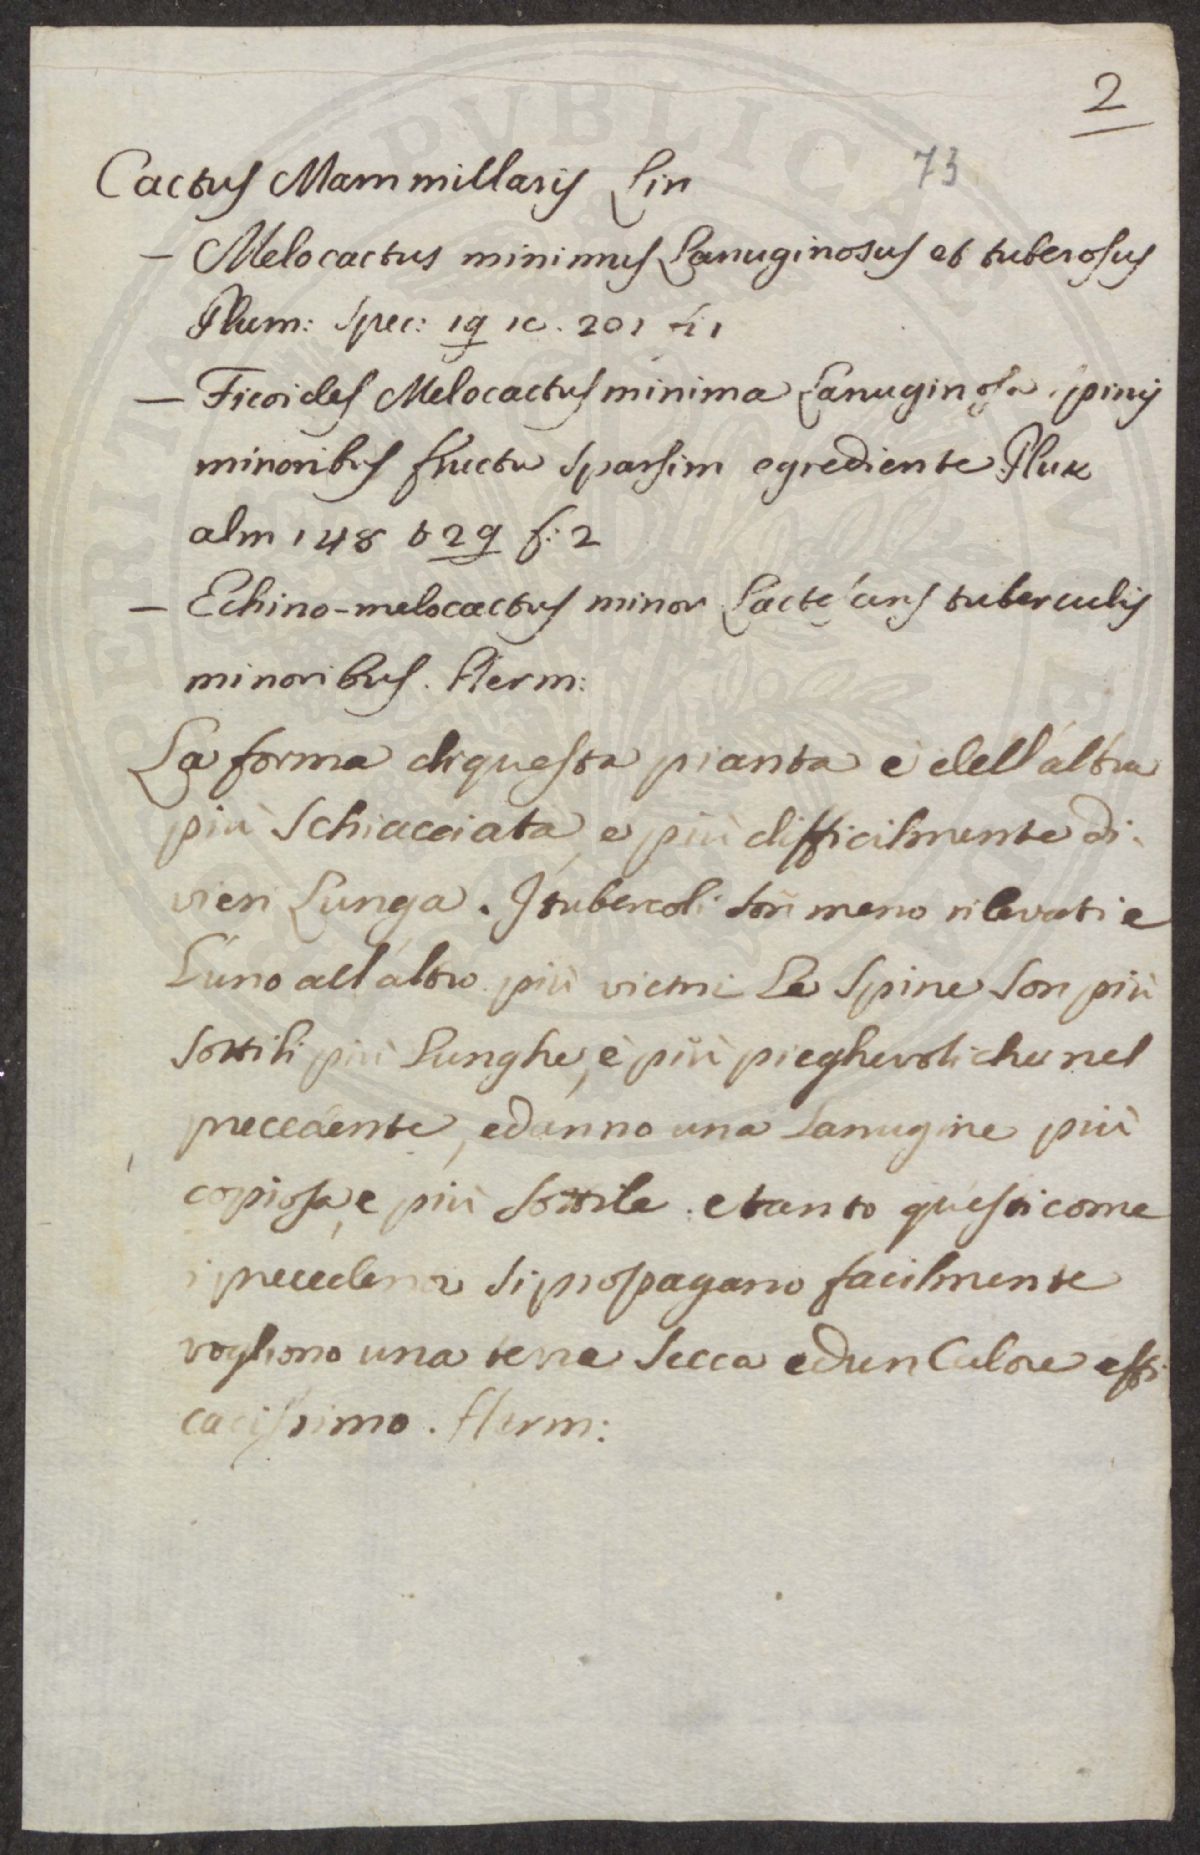 2
73
Cactus Mammillaris Lin
– Melocactus minimus Lanuginosus et tuberosus
Plum: Spec: 19 ic. 201 f. 1
– Ficoides Melocactus minima Lanuginosa spinis
minoribus fructu sparsim egrediente Pluk
alm 148 t 29 f: 2
– Echino-melocactus minor Lactescens tuberculis
minoribus. Herm:
La forma di questa pianta è dell'altra
più schiacciata, e più difficilmente di,
vien Lunga. I tubercoli son meno rilevati e
L'uno all'altro più vicini Le Spine son più
sottili più Lunghe, e più pieghevoli che nel
precedente, ed anno una Lanugine più
copiosa, e più sottile. e tanto questi come
i precedenti si propagano facilmente
vogliono una terra secca ed un Calore effi
cacissimo. Herm: